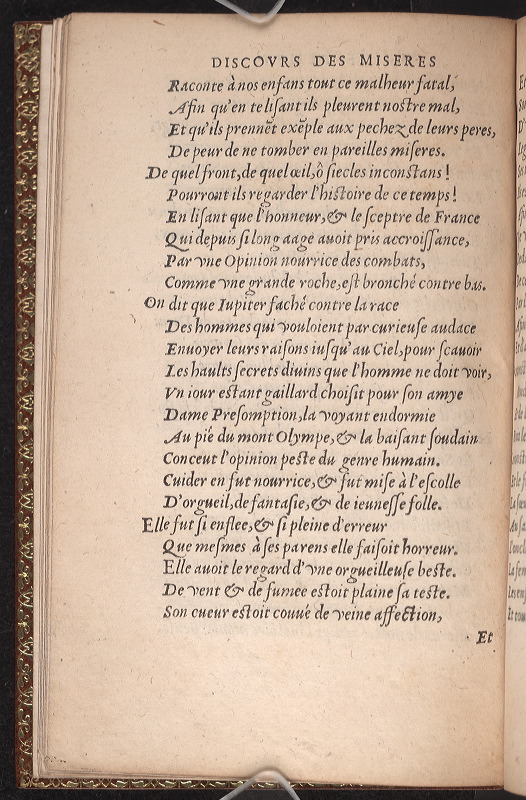 DISCOVRS DES MISERES
Raconte à nos enfans tout ce malheur fatal,
Afin qu'en te lisant ils pleurent nostre mal,
Et qu'ils prennẽt exẽple aux pechez de leurs peres,
De peur de ne tomber en pareilles miseres.
De quel front, de quel œil, ô siecles inconstans!
Pourront ils regarder l'histoire de ce temps!
En lisant que l'honneur, & le sceptre de France
Qui depuis si long aage auoit pris accroissance,
Par vne Opinion nourrice des combats,
Comme vne grande roche, est bronché contre bas.
On dit que Iupiter faché contre la race
Des hommes qui vouloient par curieuse audace
Enuoyer leurs raisons iusqu'au Ciel, pour scauoir
Les haults secrets diuins que l'homme ne doit voir,
Vn iour estant gaillard choisit pour son amye
Dame Presomption, la voyant endormie
Au pié du mont Olympe, & la baisant soudain
Conceut l'opinion peste du genre humain.
Cuider en fut nourrice, & fut mise à l'escolle
D'orgueil, de fantasie, & de ieunesse folle.
Elle fut si enflee, & si pleine d'erreur
Que mesmes à ses parens elle faisoit horreur.
Elle auoit le regard d'vne orgueilleuse beste.
De vent & de fumee estoit plaine sa teste.
Son cueur estoit couué de veine affection,
Et